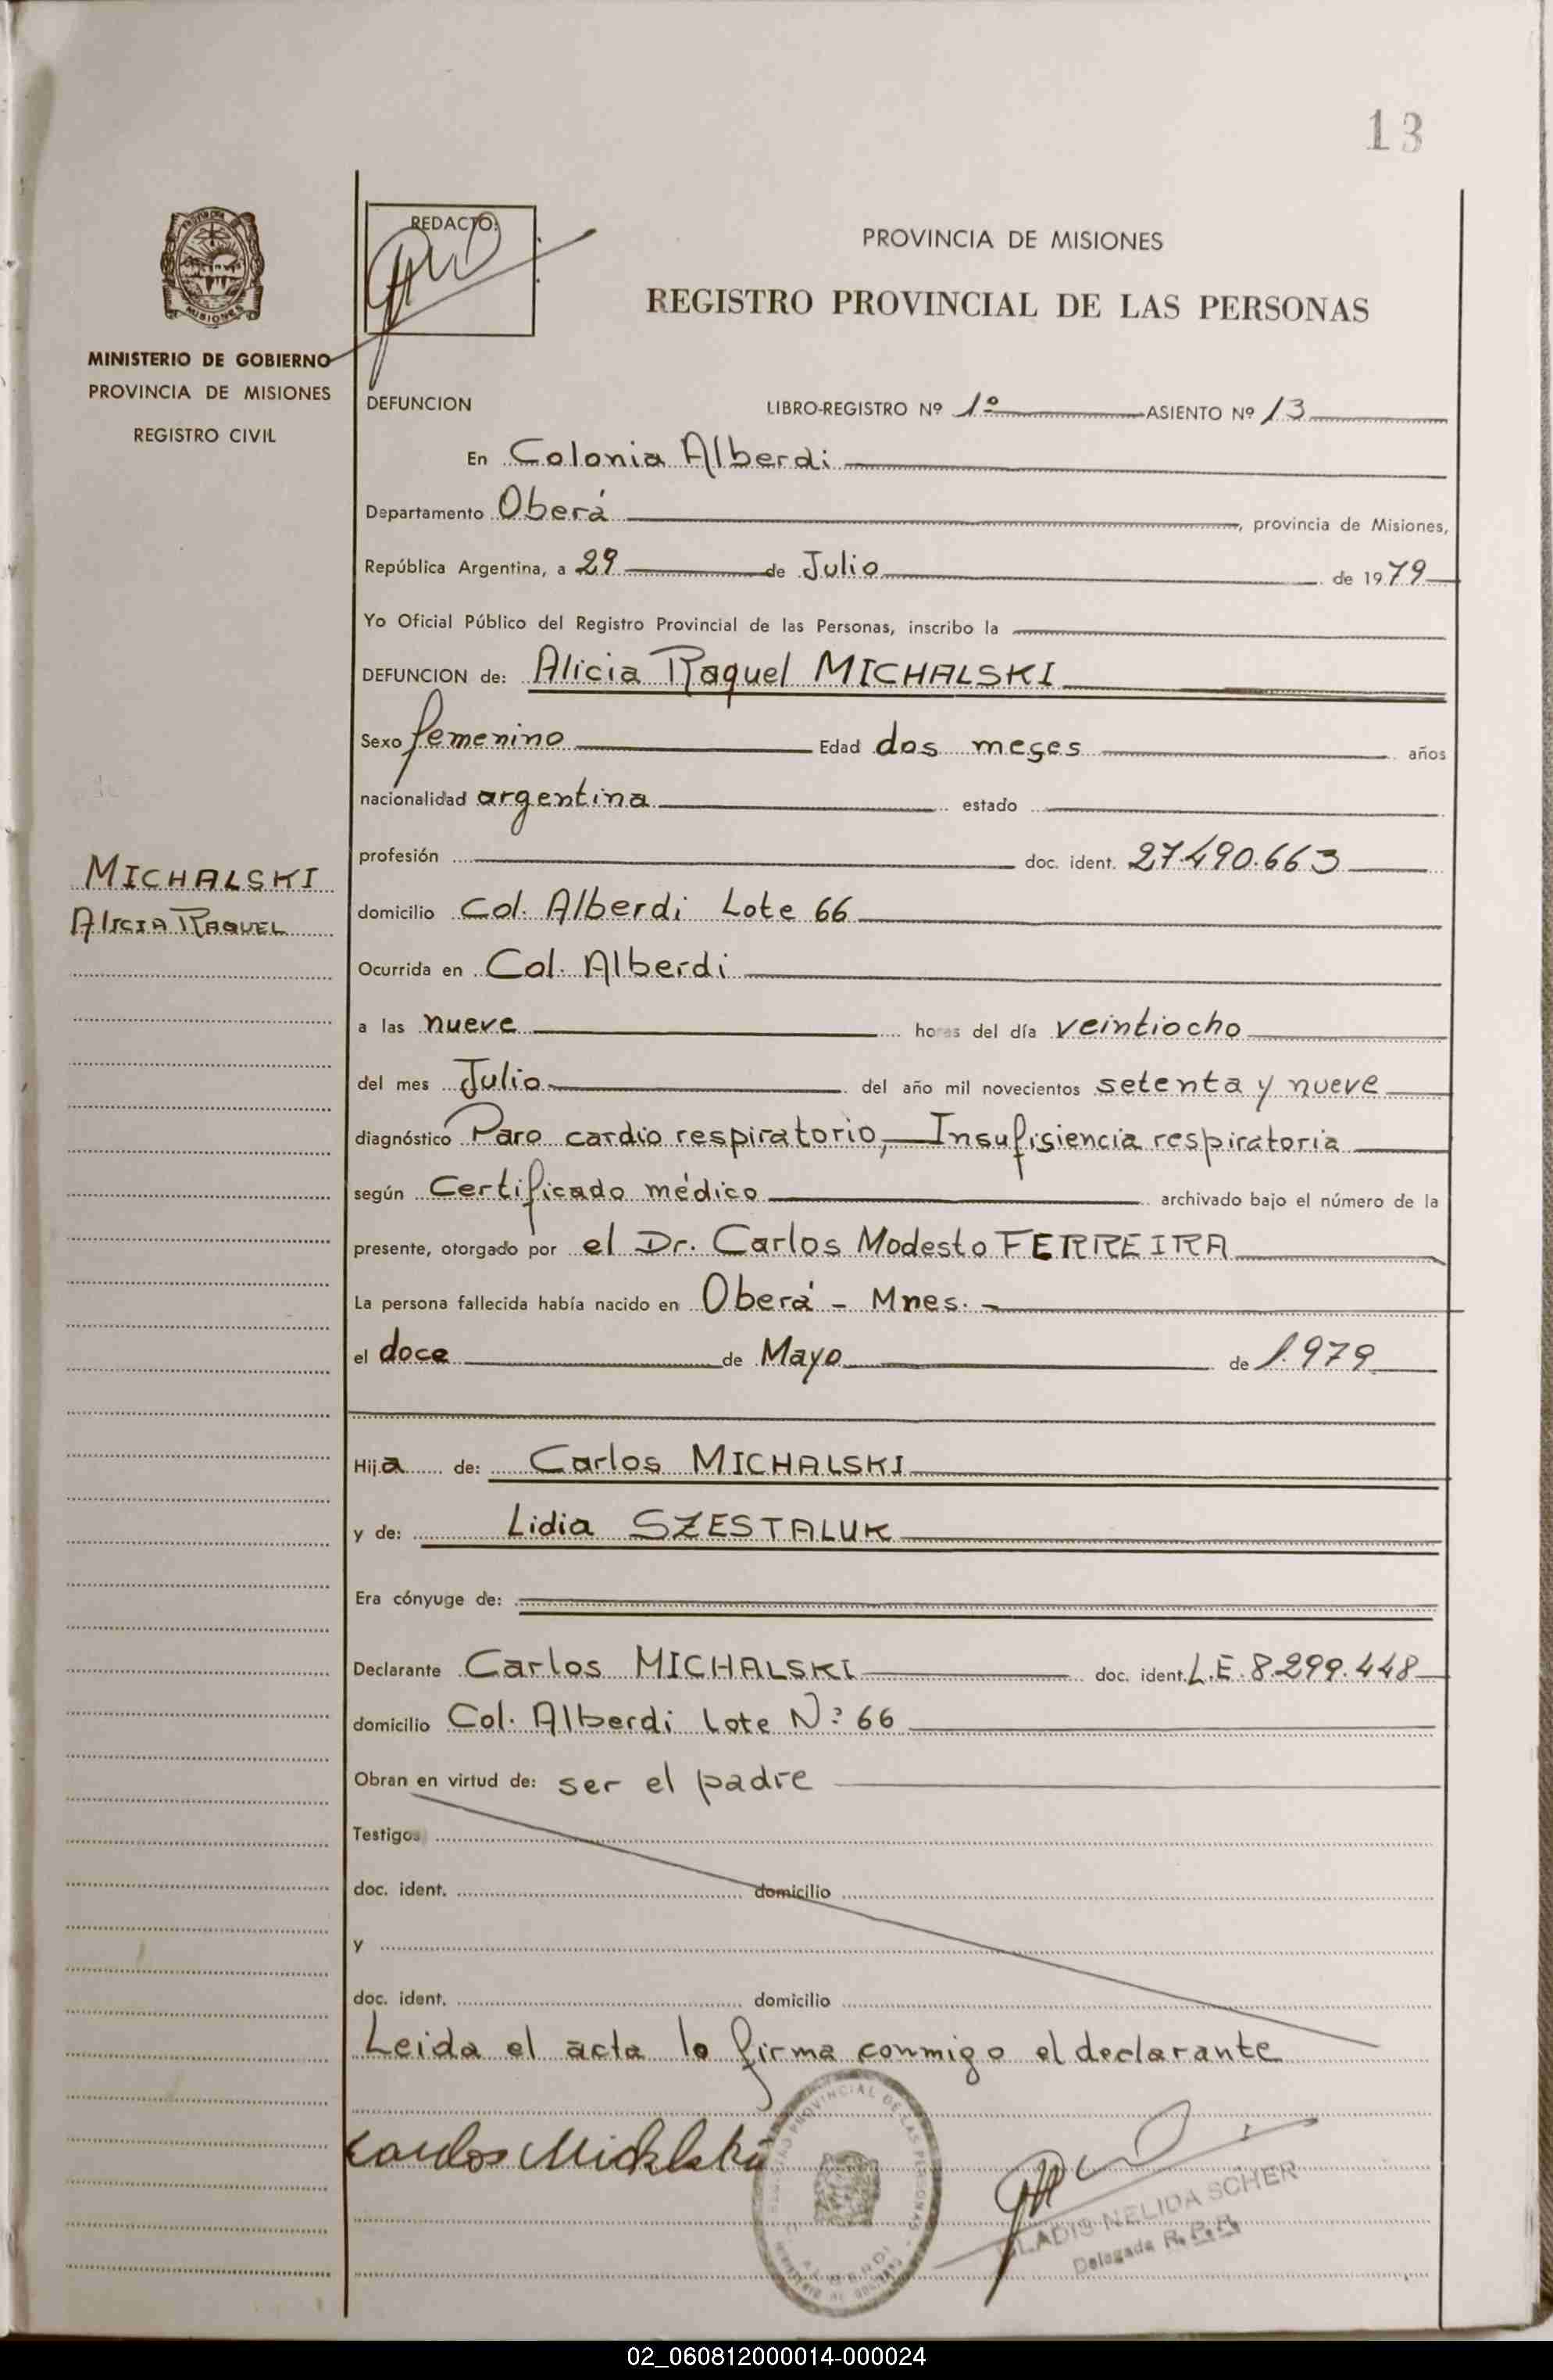 13
REDACTO:
PROVINCIA DE MISIONES
REGISTRO PROVINCIAL DE LAS PERSONAS
MISIONES
MINISTERIO DE GOBIERNO
PROVINCIA DE MISIONES
REGISTRO CIVIL
DEFUNCION LIBRO-REGISTRO Nº 1º ASIENTO Nº 13
En Colonia Alberdi
Departamento Oberá, provincia de Misiones,
República Argentina, a 29 de Julio de 1979
Yo Oficial Público del Registro Provincial de las Personas, inscribo la
DEFUNCION de: Alicia Raquel MICHALSKI
Sexo femenino Edad dos meses años
nacionalidad argentina estado
MICHALSKI
ALICIA RAQUEL
profesión doc. ident. 27.490.663
domicilio Col. Alberdi Lote 66
Ocurrida en Col. Alberdi
a las nueve horas del día veintiocho
del mes Julio del año mil novecientos setenta y nueve
diagnóstico Paro cardio respiratorio, Insufisiencia respiratoria
según Certificado médico archivado bajo el número de la
presente, otorgado por el Dr. Carlos Modesto FERREIRA
La persona fallecida había nacido en Oberá - Mnes. -
el doce de Mayo de 1.979
Hija de: Carlos MICHALSKI
y de: Lidia SZESTALUK
Era cónyuge de:
Declarante Carlos MICHALSKI doc. ident. L.E. 8.299.448
domicilio Col. Alberdi Lote Nº 66
Obran en virtud de: ser el padre
Testigos
doc. ident. domicilio
y
doc. ident. domicilio
Leida el acta lo firma conmigo el declarante
Carlos Michalski
GLADIS NELIDA SCHER
Delegada R.P.P.
02_060812000014-000024